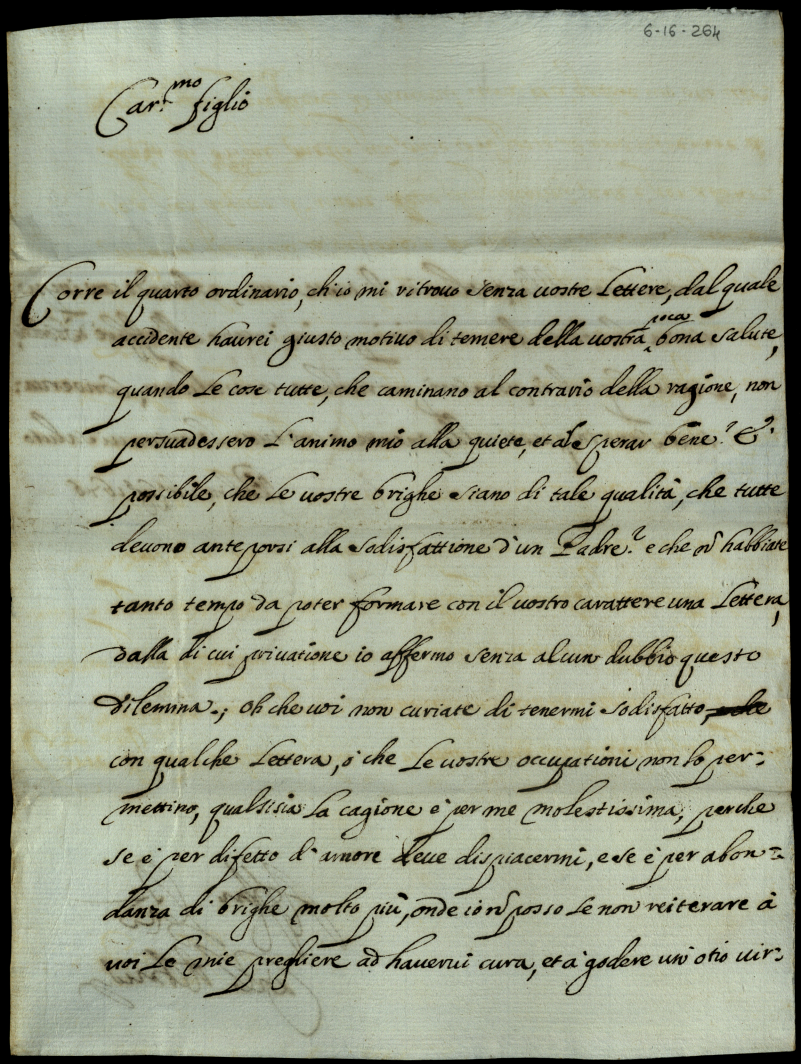 6-16-264
Car.mo figlio
Corre il quarto ordinario, ch'io mi ritrovo senza vostre Lettere, dal quale
poca
accidente haurei giusto motivo di temere della vostra bona salute,
quando le cose tutte, che caminano al contrario della ragione, non
persuadessero l'animo mio alla quiete, et al sperar bene? È
possibile, che le vostre brighe siano di tale qualità, che tutte
devono anteporsi alla sodisfattione d'un Padre? e che nõ habbiate
tanto tempo da poter formare con il vostro carattere una Lettera,
dalla di cui privatione io affermo senza alcun dubbio questo
dilemma.; Oh che voi non curiate di tenermi sodisfatto,
con qualche Lettera, ò che le vostre occupationi non lo per=
mettino, qualsisia la cagione è per me molestissima, perche
se è per difetto di amore deve dispiacermi, e se è per abon=
danza di brighe molto più, onde io nõ posso se non reiterare à
voi le mie preghiere ad havervi cura, et à godere un'otio vir=